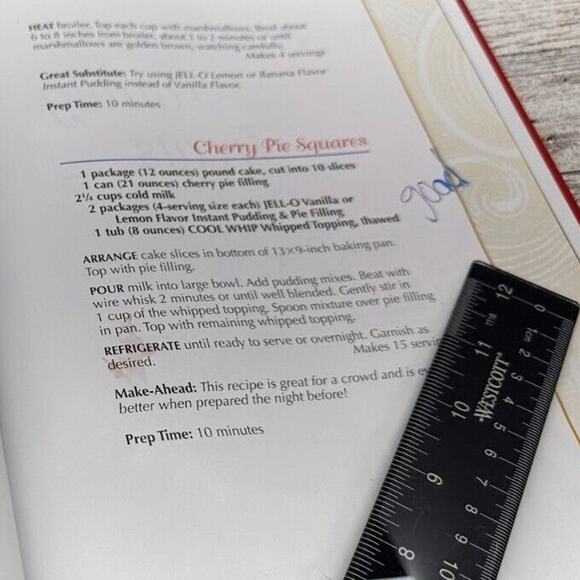 HEAT broiler. Top each cup with marshmallows. Broil about
6 to 8 inches from broiler, about 1 to 2 minutes or until
marshmallows are golden brown, watching carefully.
Makes 4 servings
Great Substitute: Try using JELL-O Lemon or Banana Flavor
Instant Pudding instead of Vanilla Flavor.
Prep Time: 10 minutes
Cherry Pie Squares
1 package (12 ounces) pound cake, cut into 10 slices
1 can (21 ounces) cherry pie filling
2¼ cups cold milk
2 packages (4-serving size each) JELL-O Vanilla or
Lemon Flavor Instant Pudding & Pie Filling
1 tub (8 ounces) COOL WHIP Whipped Topping, thawed
good
ARRANGE cake slices in bottom of 13×9-inch baking pan.
Top with pie filling.
POUR milk into large bowl. Add pudding mixes. Beat with
wire whisk 2 minutes or until well blended. Gently stir in
1 cup of the whipped topping. Spoon mixture over pie filling
in pan. Top with remaining whipped topping.
REFRIGERATE until ready to serve or overnight. Garnish as
desired.
Makes 15 servin
Make-Ahead: This recipe is great for a crowd and is ev
better when prepared the night before!
Prep Time: 10 minutes
12 11 10 9 8
WESTCOTT
0 1cm 2 3 4 5 6 7 8 9 10